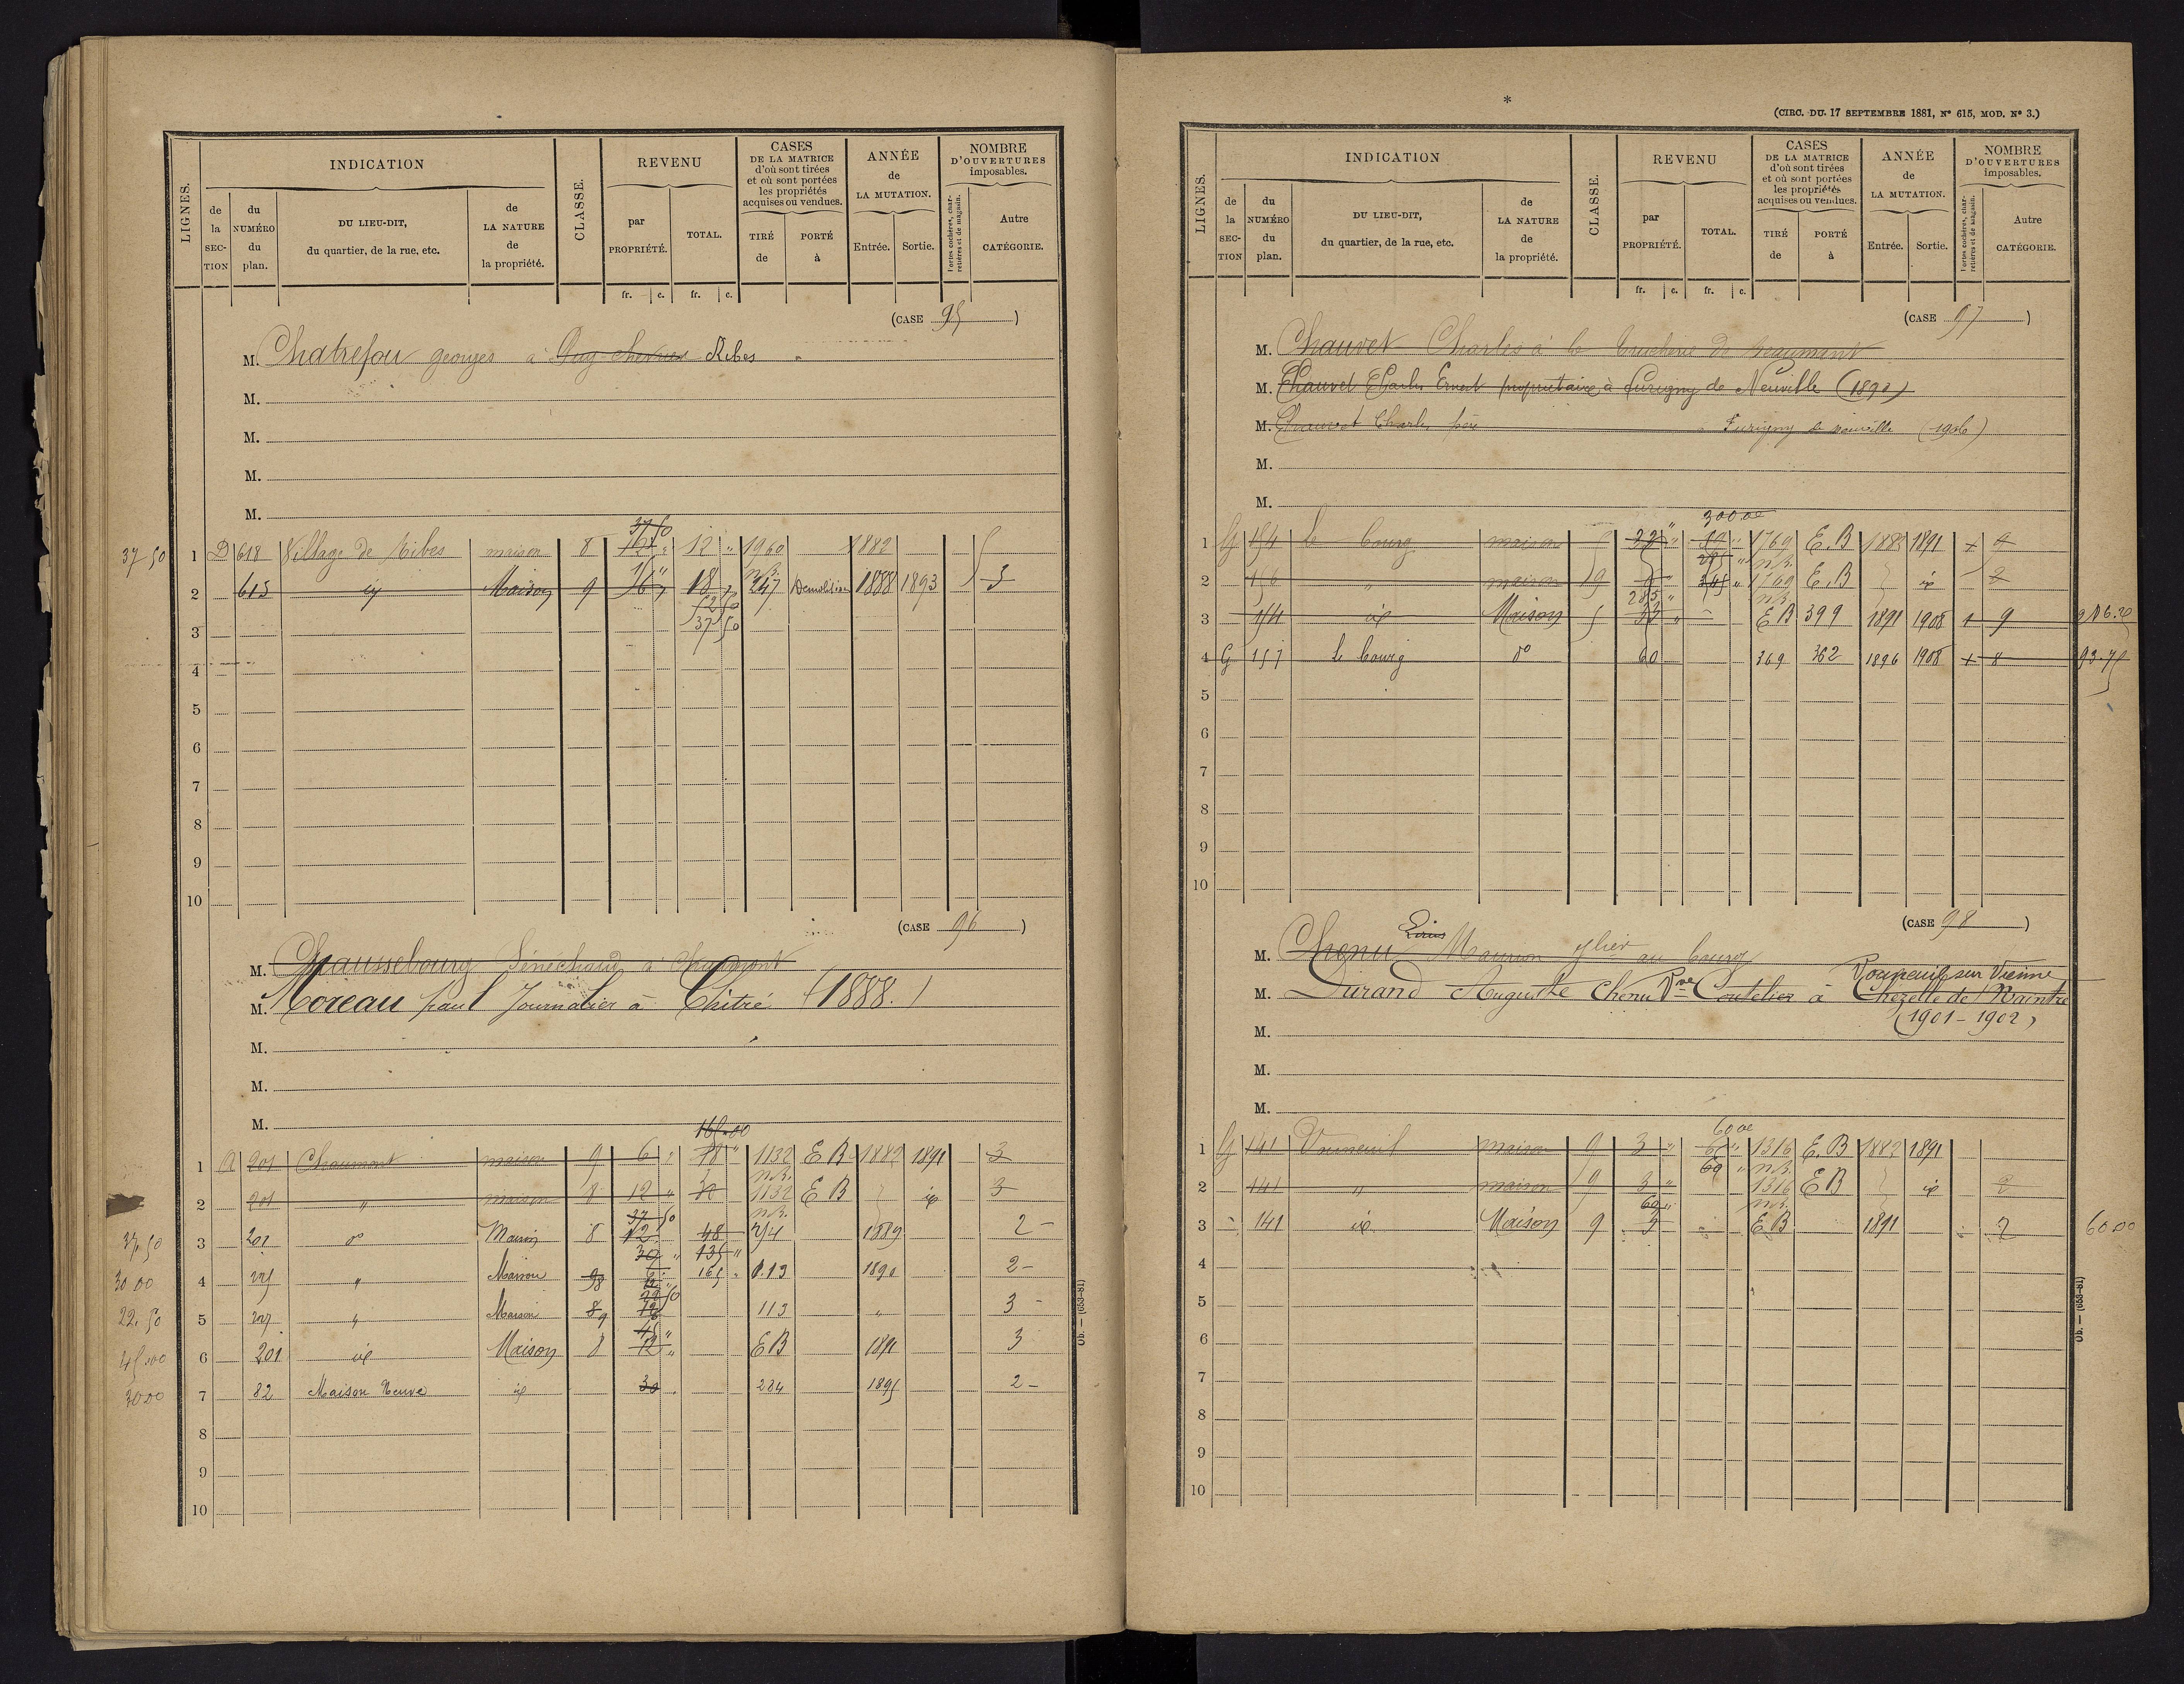 LIGNES.
INDICATION
de la SECTION
du NUMÉRO du plan.
DU LIEU-DIT, du quartier, de la rue, etc.
de LA NATURE de la propriété.
CLASSE.
REVENU
par PROPRIÉTÉ.
TOTAL.
fr. c. fr. c.
CASES DE LA MATRICE d'où sont tirées et où sont portées les propriétés acquises ou vendues.
TIRÉ de
PORTÉ à
ANNÉE de LA MUTATION.
Entrée. Sortie.
NOMBRE D'OUVERTURES imposables.
Portes cochères, charretières et de magasin.
Autre CATÉGORIE.
(CASE 95)
M. Chatrefou georges à Puy-chevrier Ribes
M.
M.
M.
M.
37 50
37 50 1 D 618 Village de Ribes maison 8 12 12 " 1960 1882
15 " n.B.
2 615 id Maison 9 6 18 " 247 Démolition 1888 1893 3
52 50
3 37 50
4
5
6
7
8
9
10
(CASE 96)
M. Chaussebourg Sénéchaud à Chaumont
M. Moreau paul Journalier à Chitré (1888.)
M.
M.
M.
165.00
1 A 201 Chaumont maison 9 6 " 18 " 1132 E B 1882 1891 3
n.B.
2 201 " maison 8 12 " 1132 E B id 3
37 50 n.B.
37.50 3 201 do Maison 8 12 48 1889 2
30 " 135 "
30 00 4 " Maison 98 6 165 " 1890 2
22 50
22.50 5 " Maison 8 9 12 113 " 3
45 "
45.00 6 201 id Maison 8 12 " E B 1891 3
30 00 7 82 Maison Neuve id 30 284 1895 2
8
9
10
Ob. — (653-81)
*
(CIRC. DU 17 SEPTEMBRE 1881, N° 615, MOD. N° 3.)
LIGNES.
INDICATION
de la SECTION
du NUMÉRO du plan.
DU LIEU-DIT, du quartier, de la rue, etc.
de LA NATURE de la propriété.
CLASSE.
REVENU
par PROPRIÉTÉ.
TOTAL.
fr. c. fr. c.
CASES DE LA MATRICE d'où sont tirées et où sont portées les propriétés acquises ou vendues.
TIRÉ de
PORTÉ à
ANNÉE de LA MUTATION.
Entrée. Sortie.
NOMBRE D'OUVERTURES imposables.
Portes cochères, charretières et de magasin.
Autre CATÉGORIE.
(CASE 97)
M. Chauvet Charles à la brucherie de Beaumont
M. Chauvet Charles Ernest propriétaire à Furigny de Neuville (1890)
M. Chauvet Charles père à Furigny de neuville (1906)
M.
M.
300.00
1 G 154 le bourg maison 5 " 1769 E.B 1882 1891 1
285 " n.B.
2 156 " maison 9 345 " 1769 E.B id 2
285 " n.B.
3 154 id Maison 5 33 " E B 399 1891 1908 1 9
4 G 157 le bourg do 60 369 362 1896 1908 1 8 93.75
5
6
7
8
9
10
(CASE 98)
M. Chenu Maurion au bourg
Vouneuil sur Vienne
M. Durand Auguste Chenu Vve Coutelier à Chezelle de Naintré
(1901-1902)
M.
M.
M.
60 00
1 G 141 Vouneuil maison 9 3 " 6 " 1316 E.B 1882 1891
60 " n.B.
2 141 " maison 9 3 " 1316 E B id 2
60 " n.B.
3 141 id Maison 9 3 E B 1891 2 60.00
4
5
6
7
8
9
10
Ob. — (653-81)